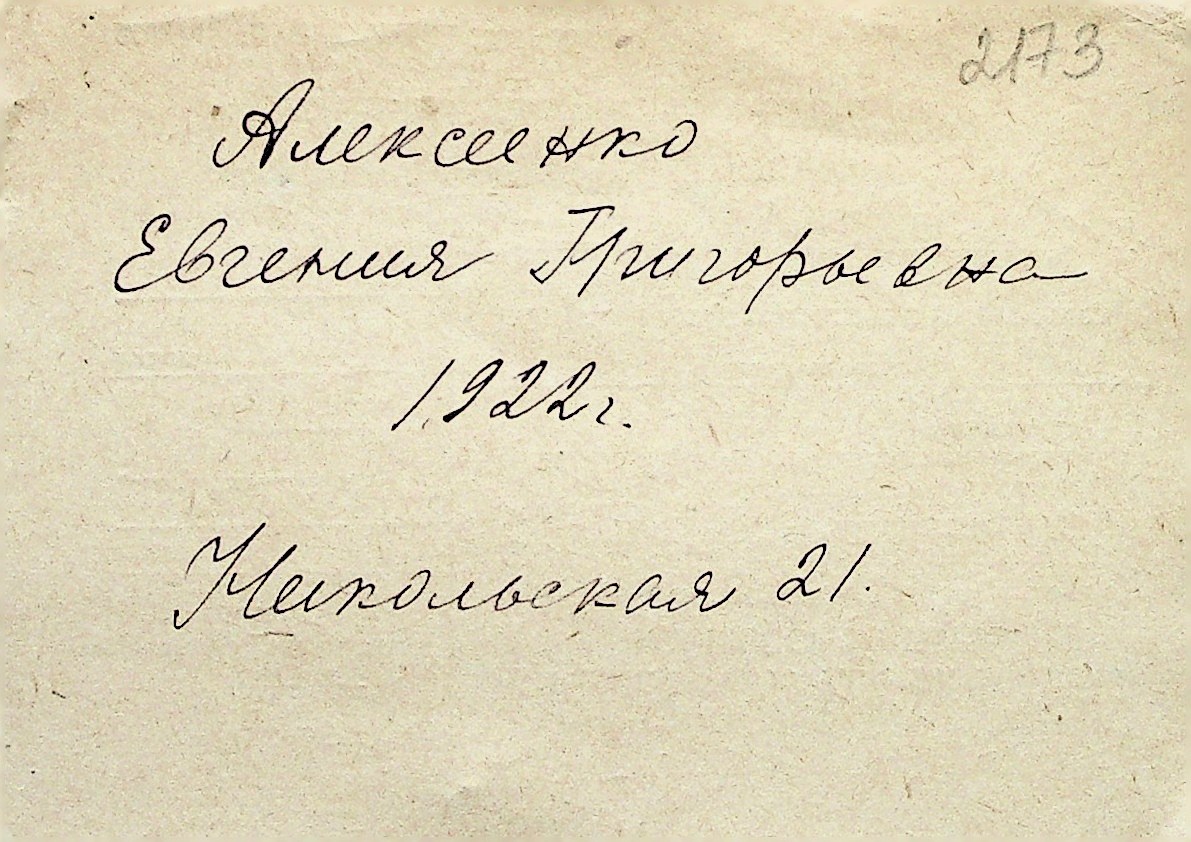 2173
Алексеенко
Евгения Григорьевна
1922г.
Никольская 21.